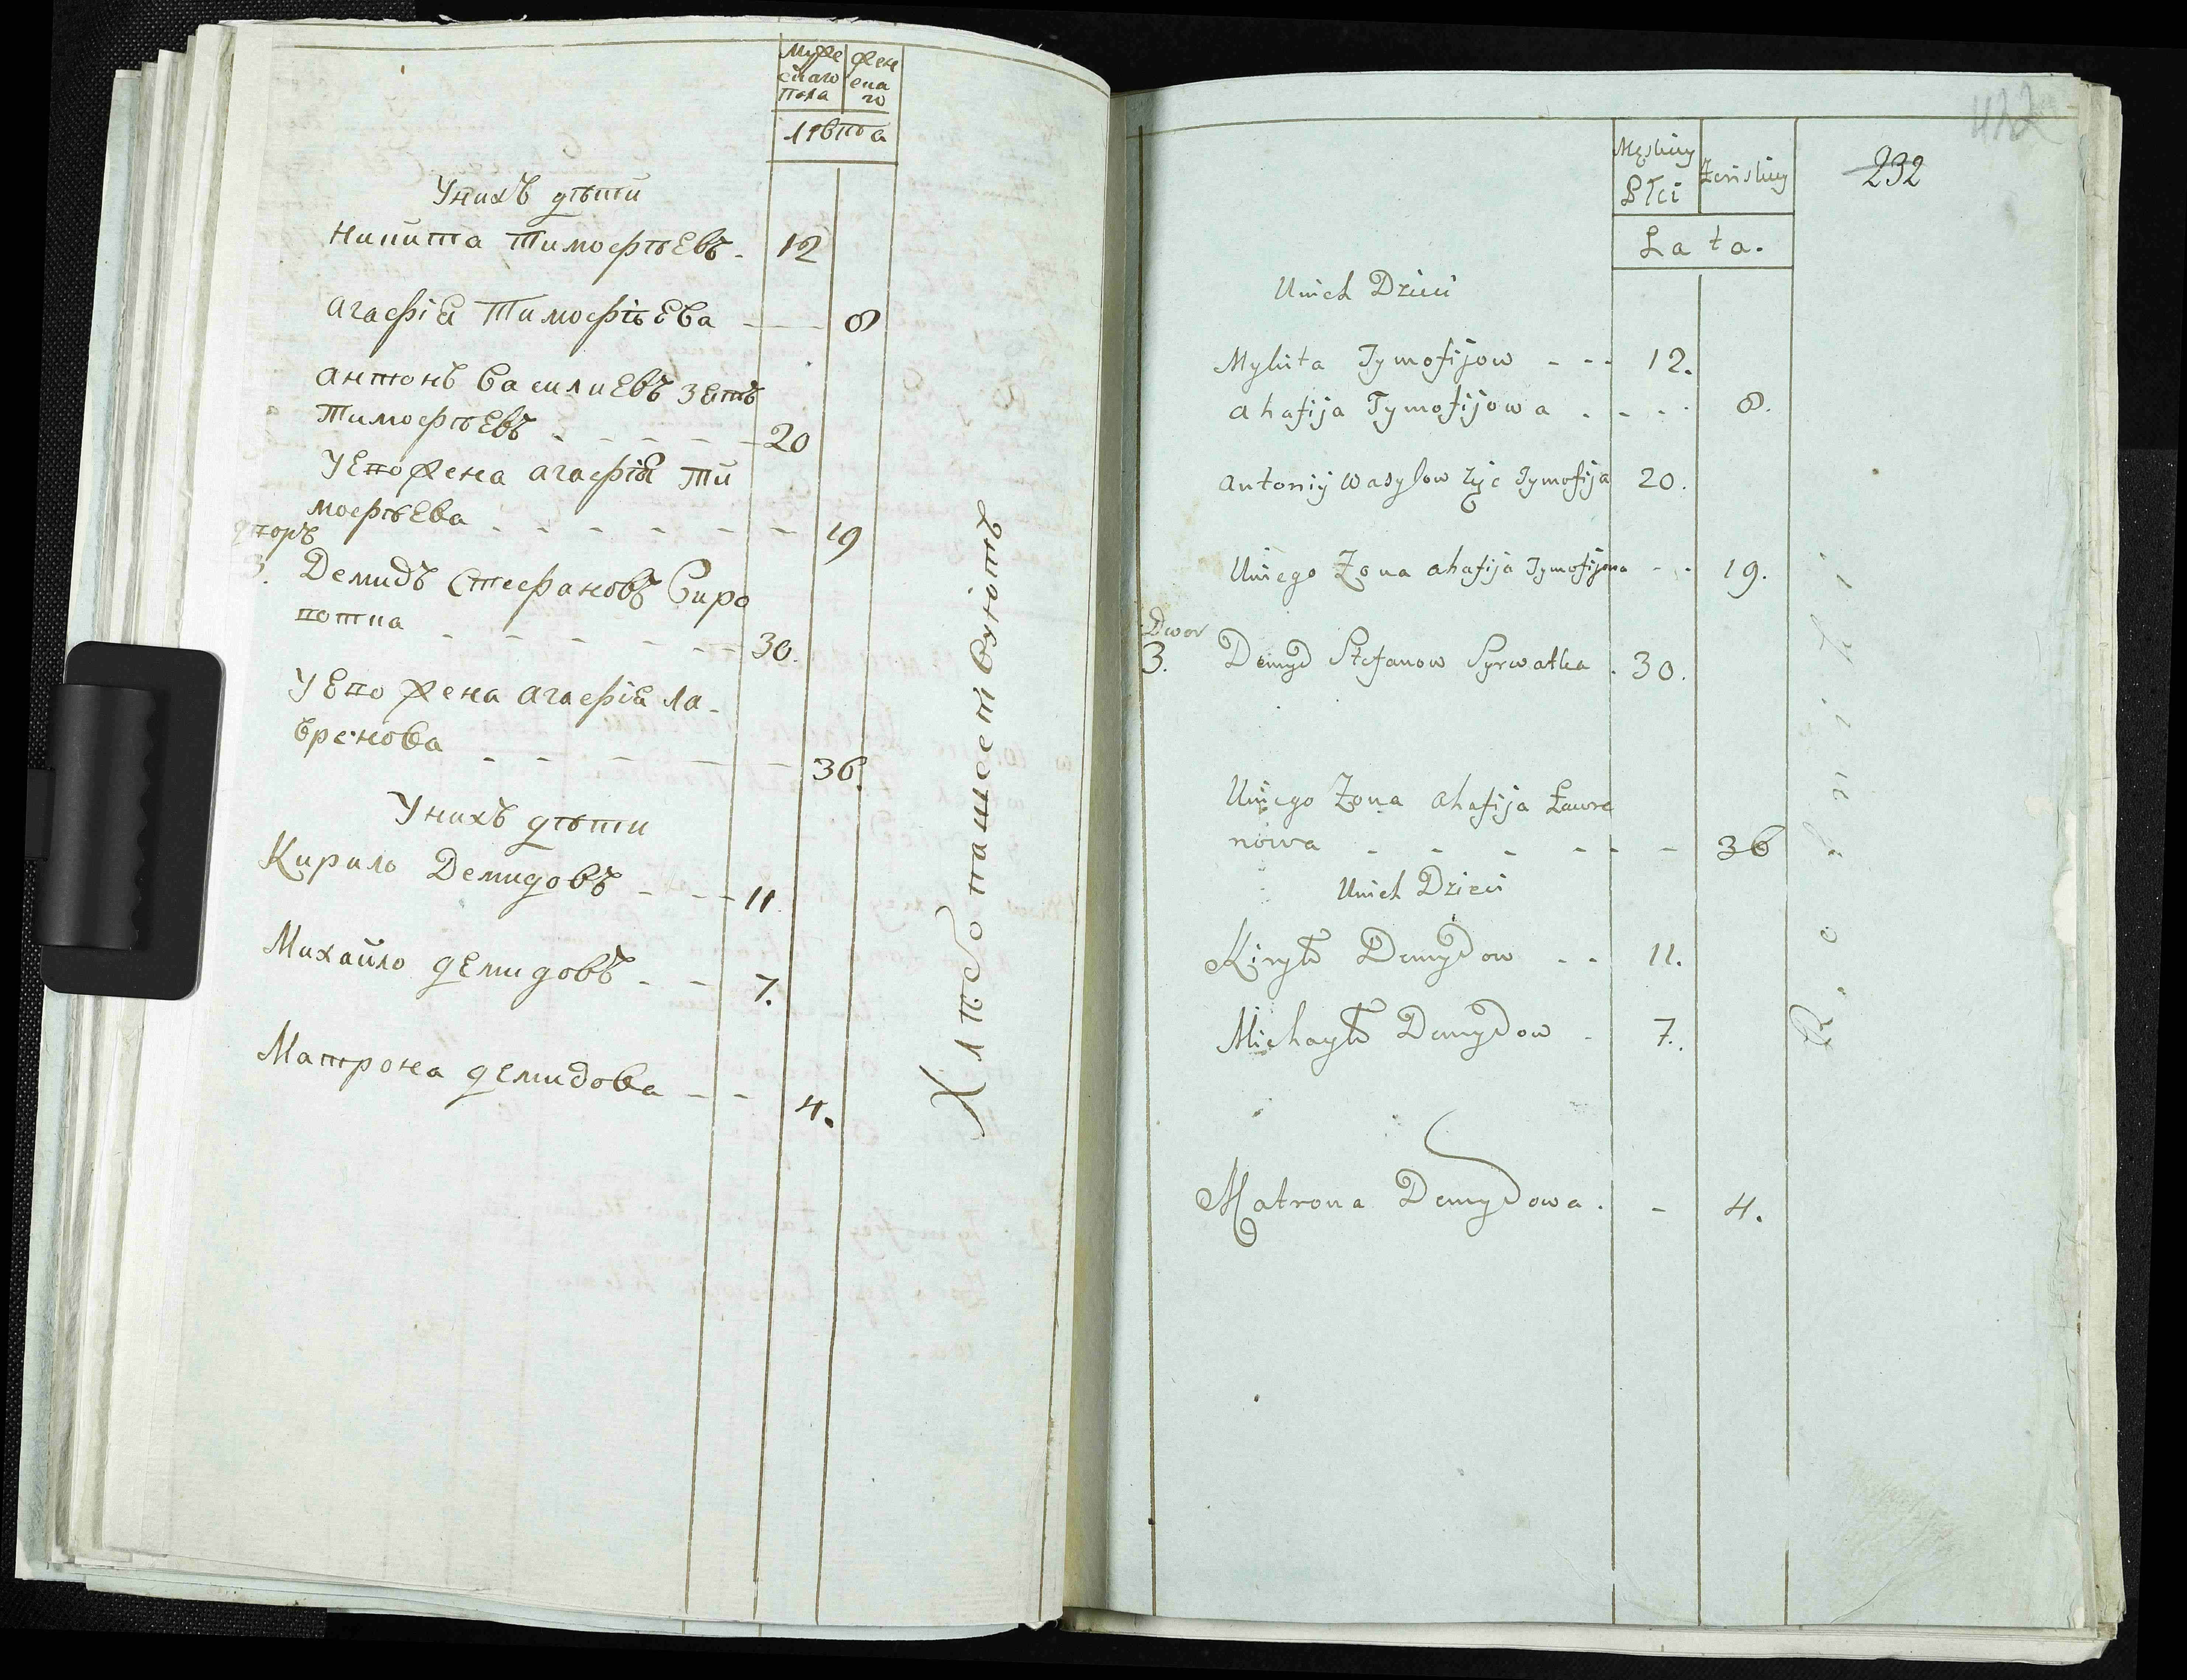 Муже
скаго
Пола
Жен
ска
го
лѣта
Унихъ дѣти
Никита Тимофѣевъ - 12
Агафія Тимофѣева - - 8
Антонъ Василиевъ зеть
Тимофѣевъ - - - - - 20
У Его жена Агафія Ти
мофѣева - - - - - - - 19
дворъ
3. Демидъ Стефановъ Сиро
ватка - - - - - - 30.
У Его жена Агафія Ла-
вренова - - - - - - 36.
Унихъ дѣти
Кирило Демидовъ - - - 11.
Михайло демидовъ - - 7.
Матрона демидова - - 4.
Хлѣбопашествуютъ
422
232
Męskiey
Płci
Żeńskiey
Lata.
Unich Dzieci
Mykita Tymofijow - - - 12.
Ahafija Tymofijowa . - - . 8.
Antoniy Wasylow Zięc Tymofija 20.
Uniego Żona Ahafija Tymofijowa - - 19.
Dwor
3. Demyd Stefanow Syrwatka . 30.
Uniego Żona Ahafija Ławre
nowa - - - - - - 36
Unich Dzieci
Kiryło Demydow - - 11.
Michayło Demydow - 7.
Matrona Demydowa . - 4.
Rolniki